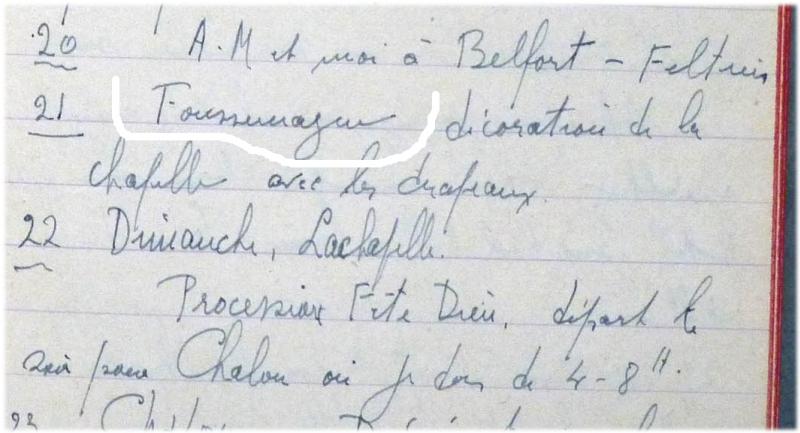 20 A.M et moi à Belfort - Feltrin
21 Foussemagne décoration de la
chapelle avec les drapeaux.
22 Dimanche, Lachapelle.
Procession Fête Dieu, départ le
soir pour Chalon où je dors de 4-8 H.
23